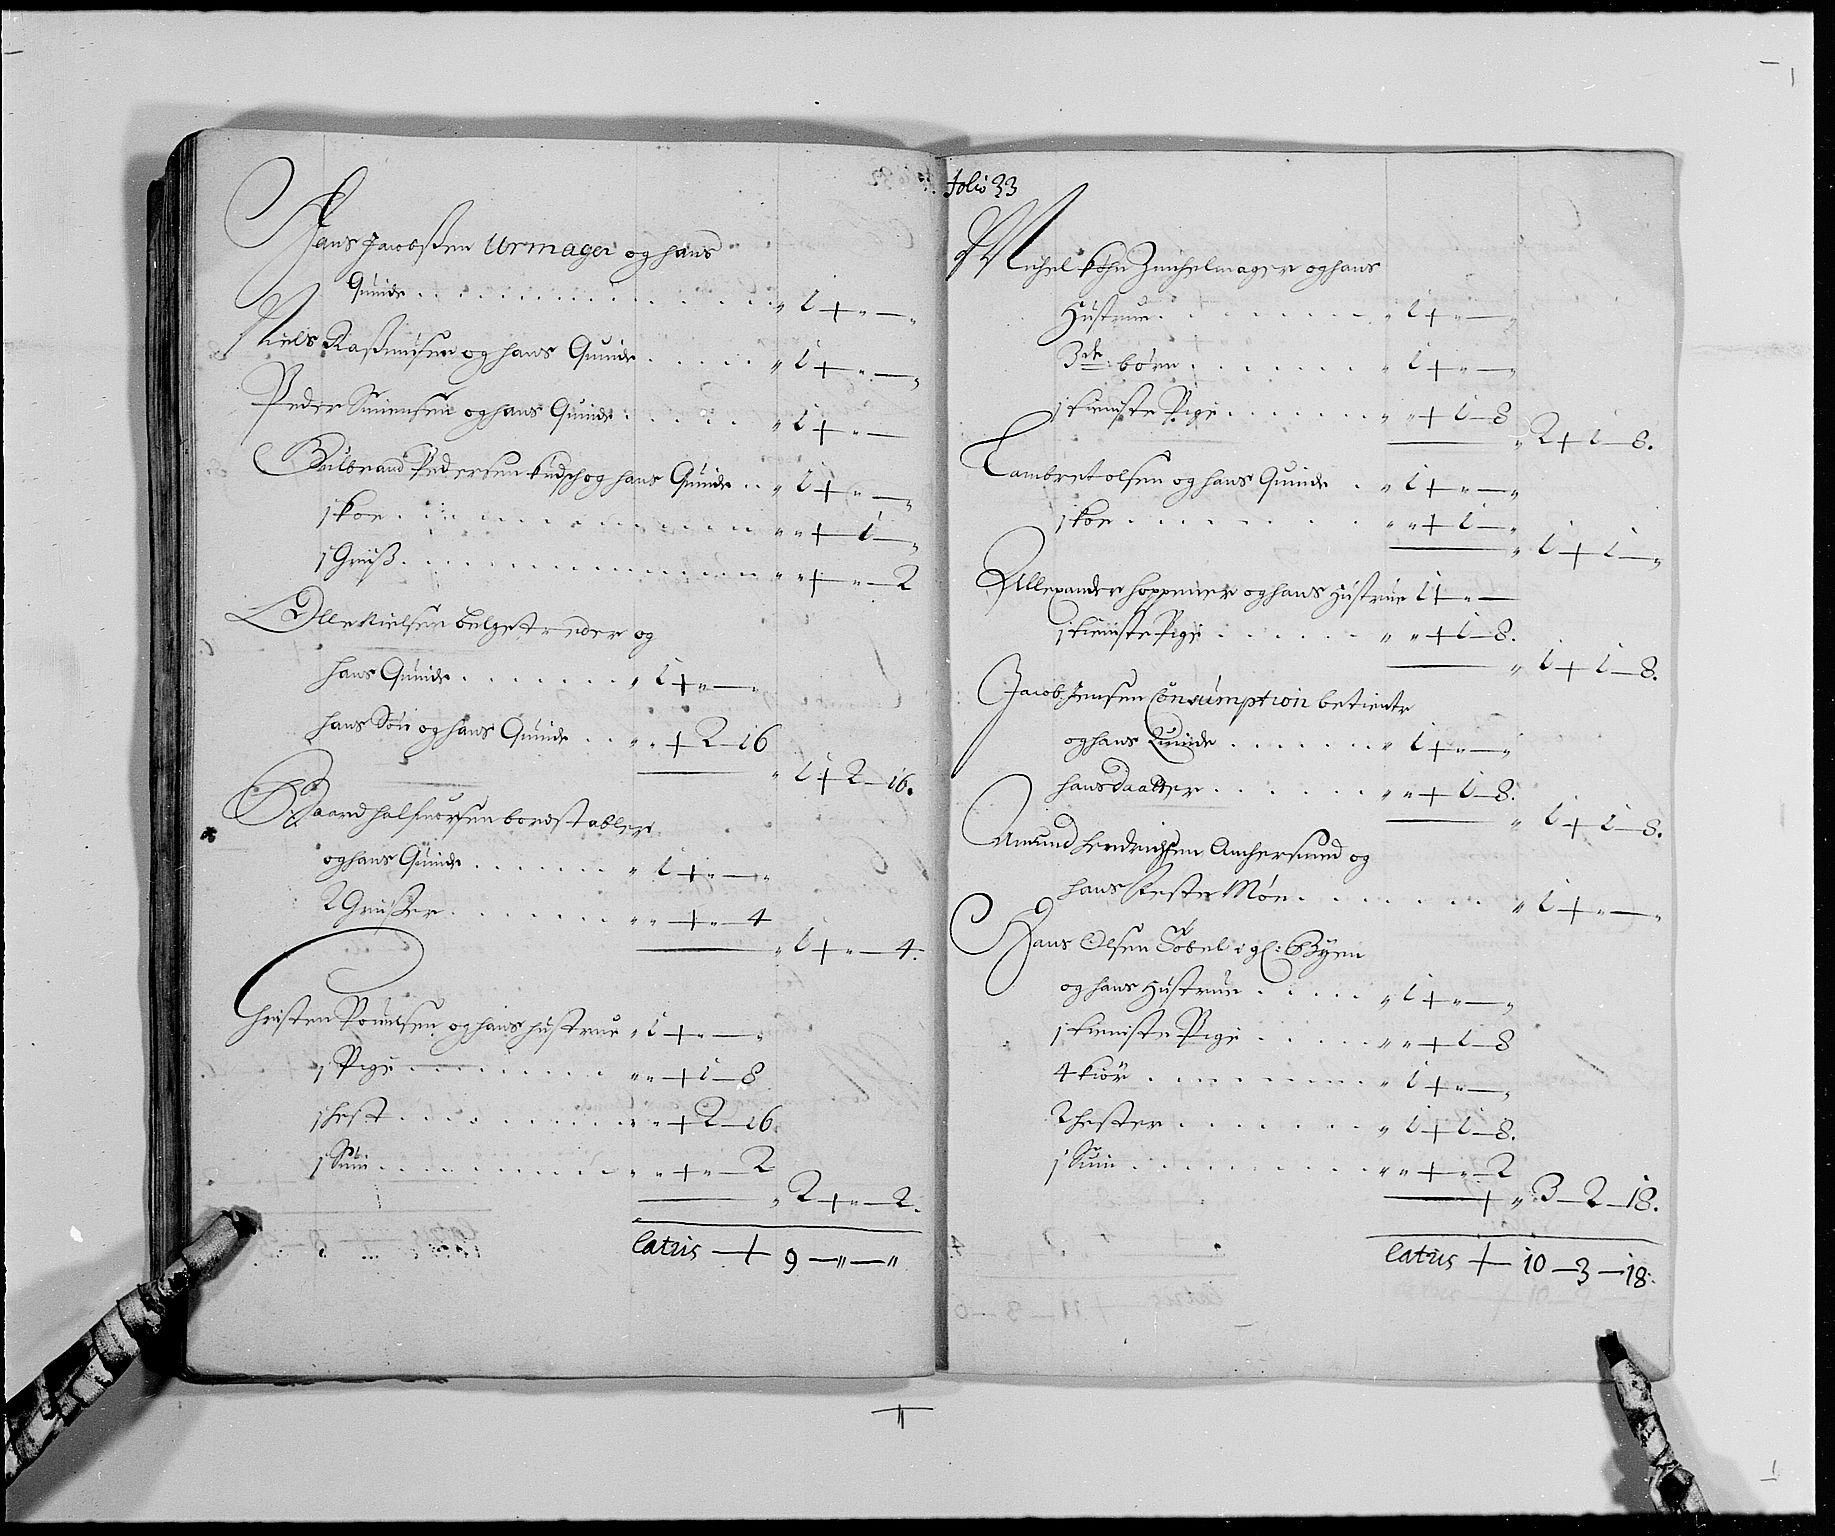 Hans Jacobsen Urmager og hans
Quinde . . . . . . . . . . . . . . „ 1 + „ — „
Niels Rasmusen og hans Quinde . . . . . „ 1 + „ — „
Peder Simensen og hans Quinde . . . . . „ 1 + „ —
Gulbrand Pedersen kudsch og hans Quinde . . „ 1 + „ — „
1 koe . . . . . . . . . . . . . „ „ + 1 — „
1 Griiß . . . . . . . . . . . . . „ „ + „ — 2
Olle Nielsen belgetreder og
hans Quinde . . . . . . . „ 1 + „ — „
hans Søn og hans Quinde . . „ „ + 2 — 16
„ 1 + 2 — 16.
Baard halfuorsen bordstabler
og hans Quinde . . . . . . „ 1 + „ — „
2 Griißer . . . . . . „ „ + „ — 4
„ 1 + „ — 4.
Christen Pouelsen og hans hustrue „ 1 + „ — „
1 Pige . . . . . . . . „ „ + 1 — 8
1 hest . . . . . . . . „ „ + 2 — 16
1 Suin . . . . . . . . „ „ + „ — 2
„ 2 + „ — 2.
latus + 9 — „ — „
folio 33
Michel Zeichelmager og hans
Hustrue . . . . . . . . „ 1 + „ — „
3de børn . . . . . . . „ 1 + „ — „
1 tieniste Pige . . . . . . „ „ + 1 — 8
„ 2 + 1 — 8.
Lambret olsen og hans Quinde . „ 1 + „ — „
1 koe . . . . . . . . „ „ + 1 — „
„ 1 + 1 — „
Allexander hoppener og hans Hustrue 1 + „ —
1 tieniste Pige . . . . . . „ „ + 1 — 8.
„ 1 + 1 — 8.
Jacob Jensen Consumption betiente
og hans Quinde . . . . . . . „ 1 + „ — „
hans daatter . . . . . . . „ „ + 1 — 8.
„ 1 + 1 — 8.
Amund Hendrichsen Anchersmed og
hans Feste Møe . . . . . . . „ 1 + „ — „
Hans Olsen i gl: Byen
og hans Hustrue . . . . . „ 1 + „ — „
1 tieniste Pige . . . . . „ „ + 1 — 8
4 kiør . . . . . . . . „ 1 + „ — „
2 hester . . . . . . . „ 1 + 1 — 8.
1 Suin . . . . . . . . „ „ + „ — 2
+ „ 3 — 2 — 18.
latus + 10 — 3 — 18.